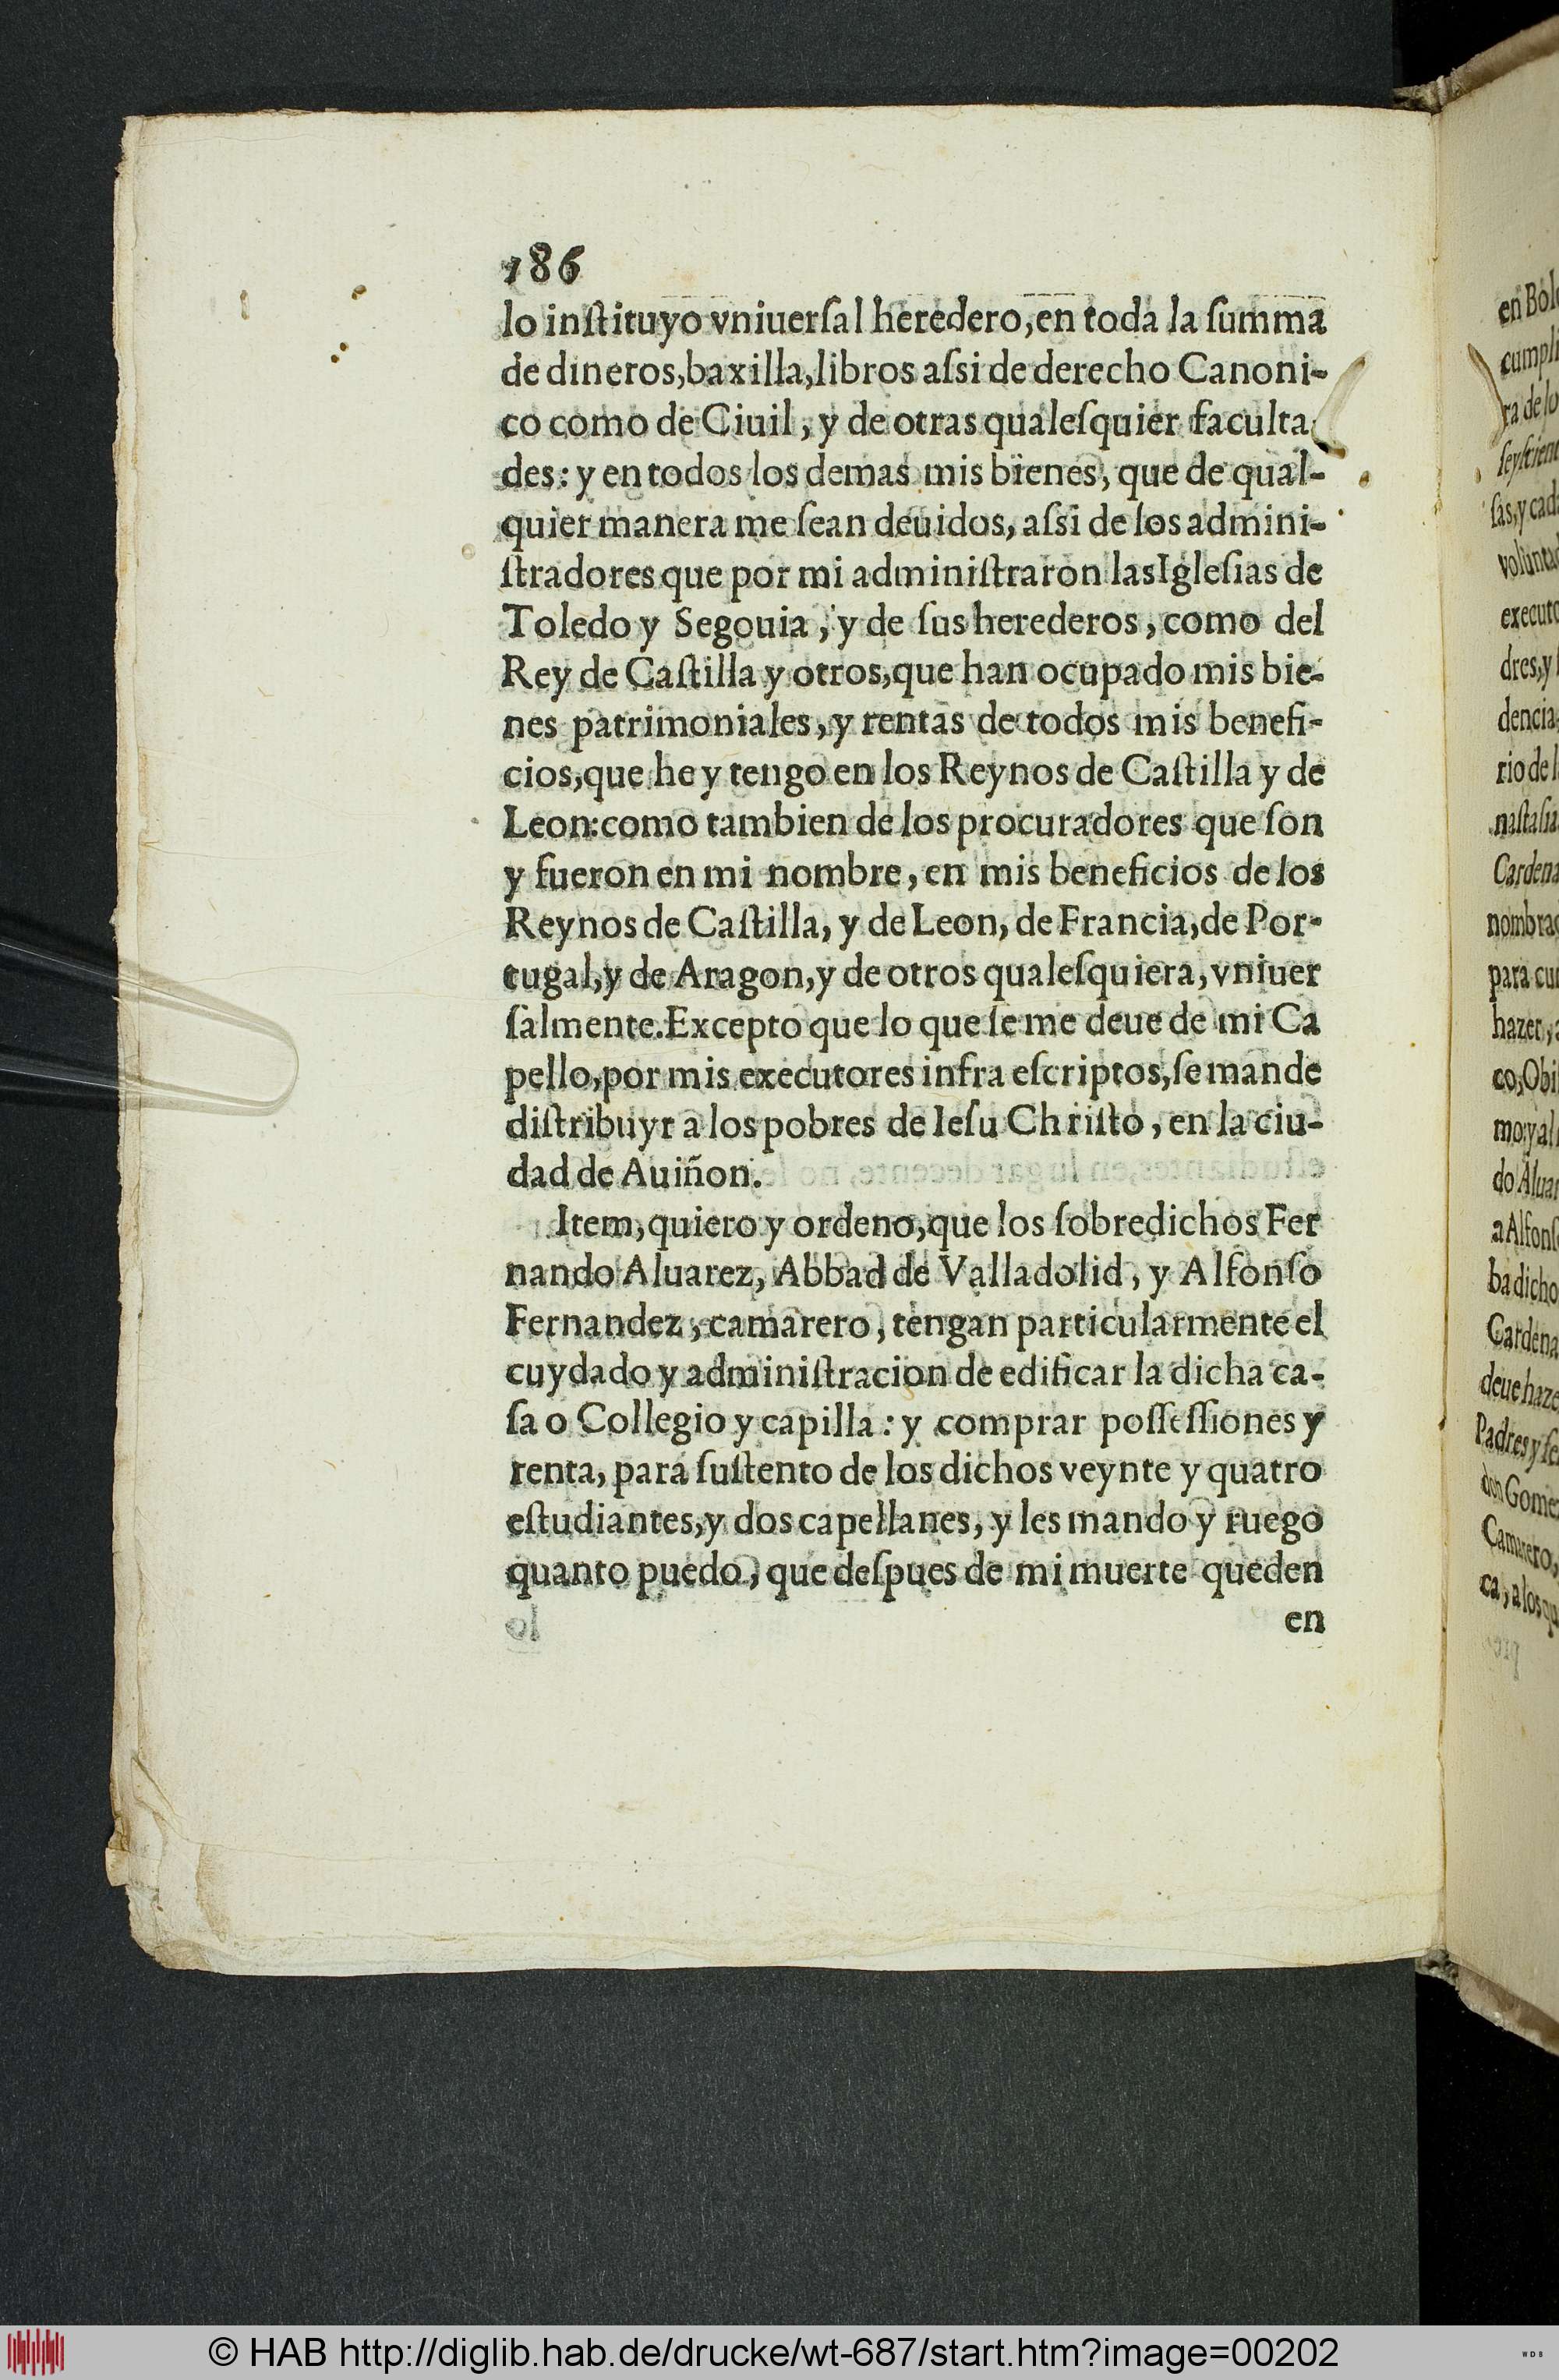 186
lo inſtituyo vniuerſal heredero,en toda la ſumma
de dineros,baxilla,libros aſsi de derecho Canoni-
co como de Ciuil, y de otras qualeſquier faculta
des: y en todos los demas mis bienes, que de qual-
quier manera me ſean deuidos, aſsi de los admini-
ſtradores que por mi adminiſtraron las Igleſias de
Toledo y Segouia, y de ſus herederos, como del
Rey de Caſtilla y otros,que han ocupado mis bie-
nes patrimoniales, y rentas de todos mis benefi-
cios,que he y tengo en los Reynos de Caſtilla y de
Leon:como tambien de los procuradores que ſon
y fueron en mi nombre, en mis beneficios de los
Reynos de Caſtilla, y de Leon, de Francia,de Por-
tugal,y de Aragon,y de otros qualeſquiera, vniuer
ſalmente.Excepto que lo que ſe me deue de mi Ca
pello,por mis executores infra eſcriptos,ſe mande
diſtribuyr a los pobres de Ieſu Chriſto, en la ciu-
dad de Auiñon.
Item,quiero y ordeno,que los ſobredichos Fer
nando Aluarez, Abbad de Valladolid, y Alfonſo
Fernandez, camarero, tengan particularmente el
cuydado y adminiſtracion de edificar la dicha ca-
ſa o Collegio y capilla: y comprar poſſeſſiones y
renta, para ſuſtento de los dichos veynte y quatro
eſtudiantes,y dos capellanes, y les mando y ruego
quanto puedo, que deſpues de mi muerte queden
en
en
cumpli
ra de lo
ſas,y cad
executo
dres,y
dencia
rio de l
Cardena
nombra
para cu
hazer,
co,Obi
mo:y al
do Aluar
a Alfonſ
ba dicho
Cardena
deue haze
Padres y ſe
don Gome
Camarero,
ca, a los qu
© HAB http://diglib.hab.de/drucke/wt-687/start.htm?image=00202
WDB